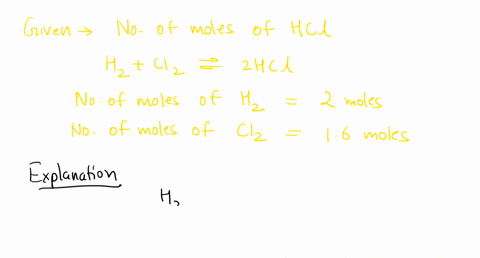 Given → No. of moles of HCl
H₂ + Cl₂ ⇌ 2HCl
No. of moles of H₂ = 2 moles
No. of moles of Cl₂ = 1.6 moles
Explanation
H₂